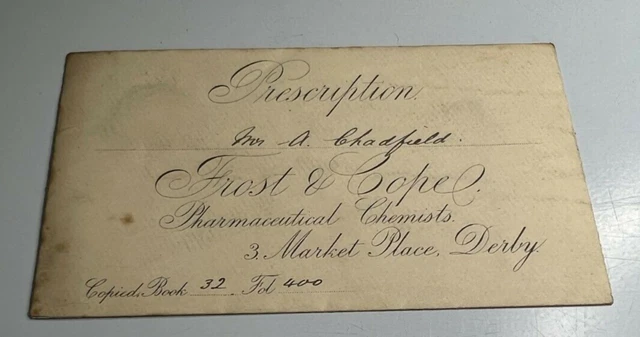 Prescription.
Mrs A. Chadfield.
Frost & Cope.
Pharmaceutical Chemists.
3. Market Place, Derby.
Copied. Book 32. Fol 400